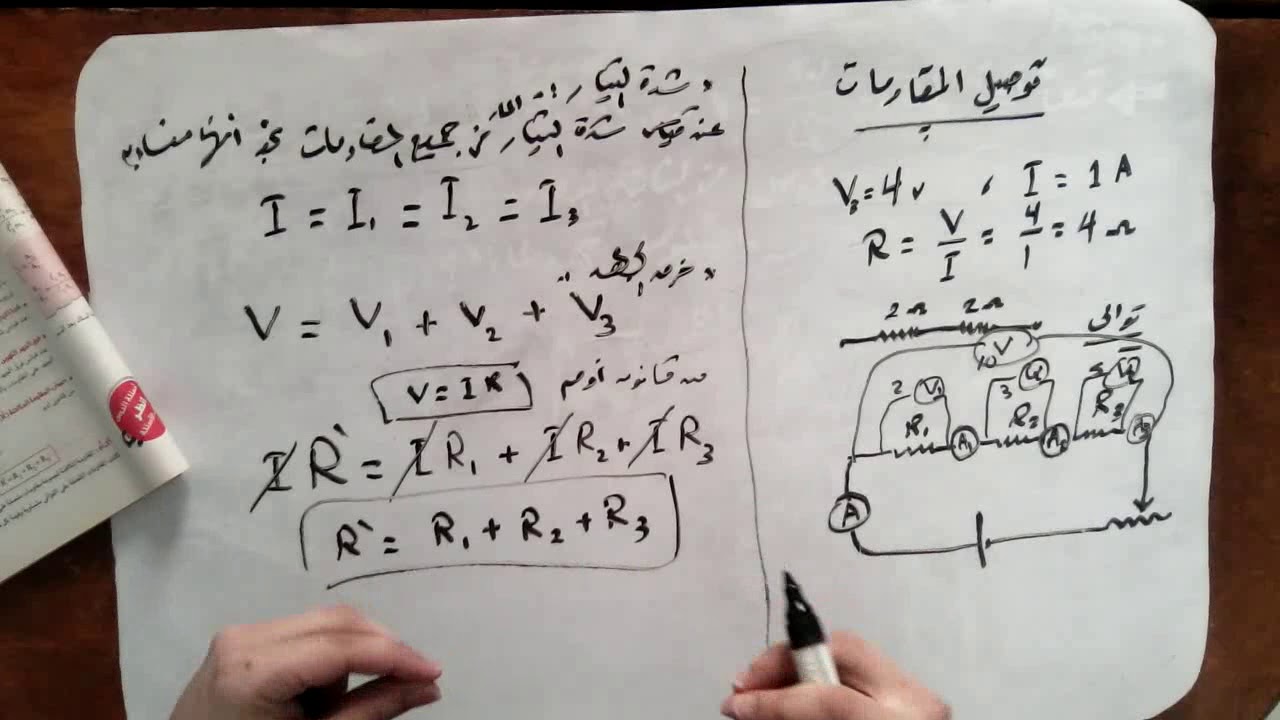 توصيل المقاومات
V₃ = 4 v ، I = 1 A
R = V/I = 4/1 = 4 Ω
2 Ω 2 Ω
توالى
V
10
2 V₁ 3
R₁ R₂ R₃
A₁ A₂
A
شدة التيار :-
عند قياس شدة التيار المار فى جميع المقاومات نجد انها متساويه
I = I₁ = I₂ = I₃
فرق الجهد :-
V = V₁ + V₂ + V₃
من قانون أوم
V = I R
I R` = I R₁ + I R₂ + I R₃
R` = R₁ + R₂ + R₃
انظر